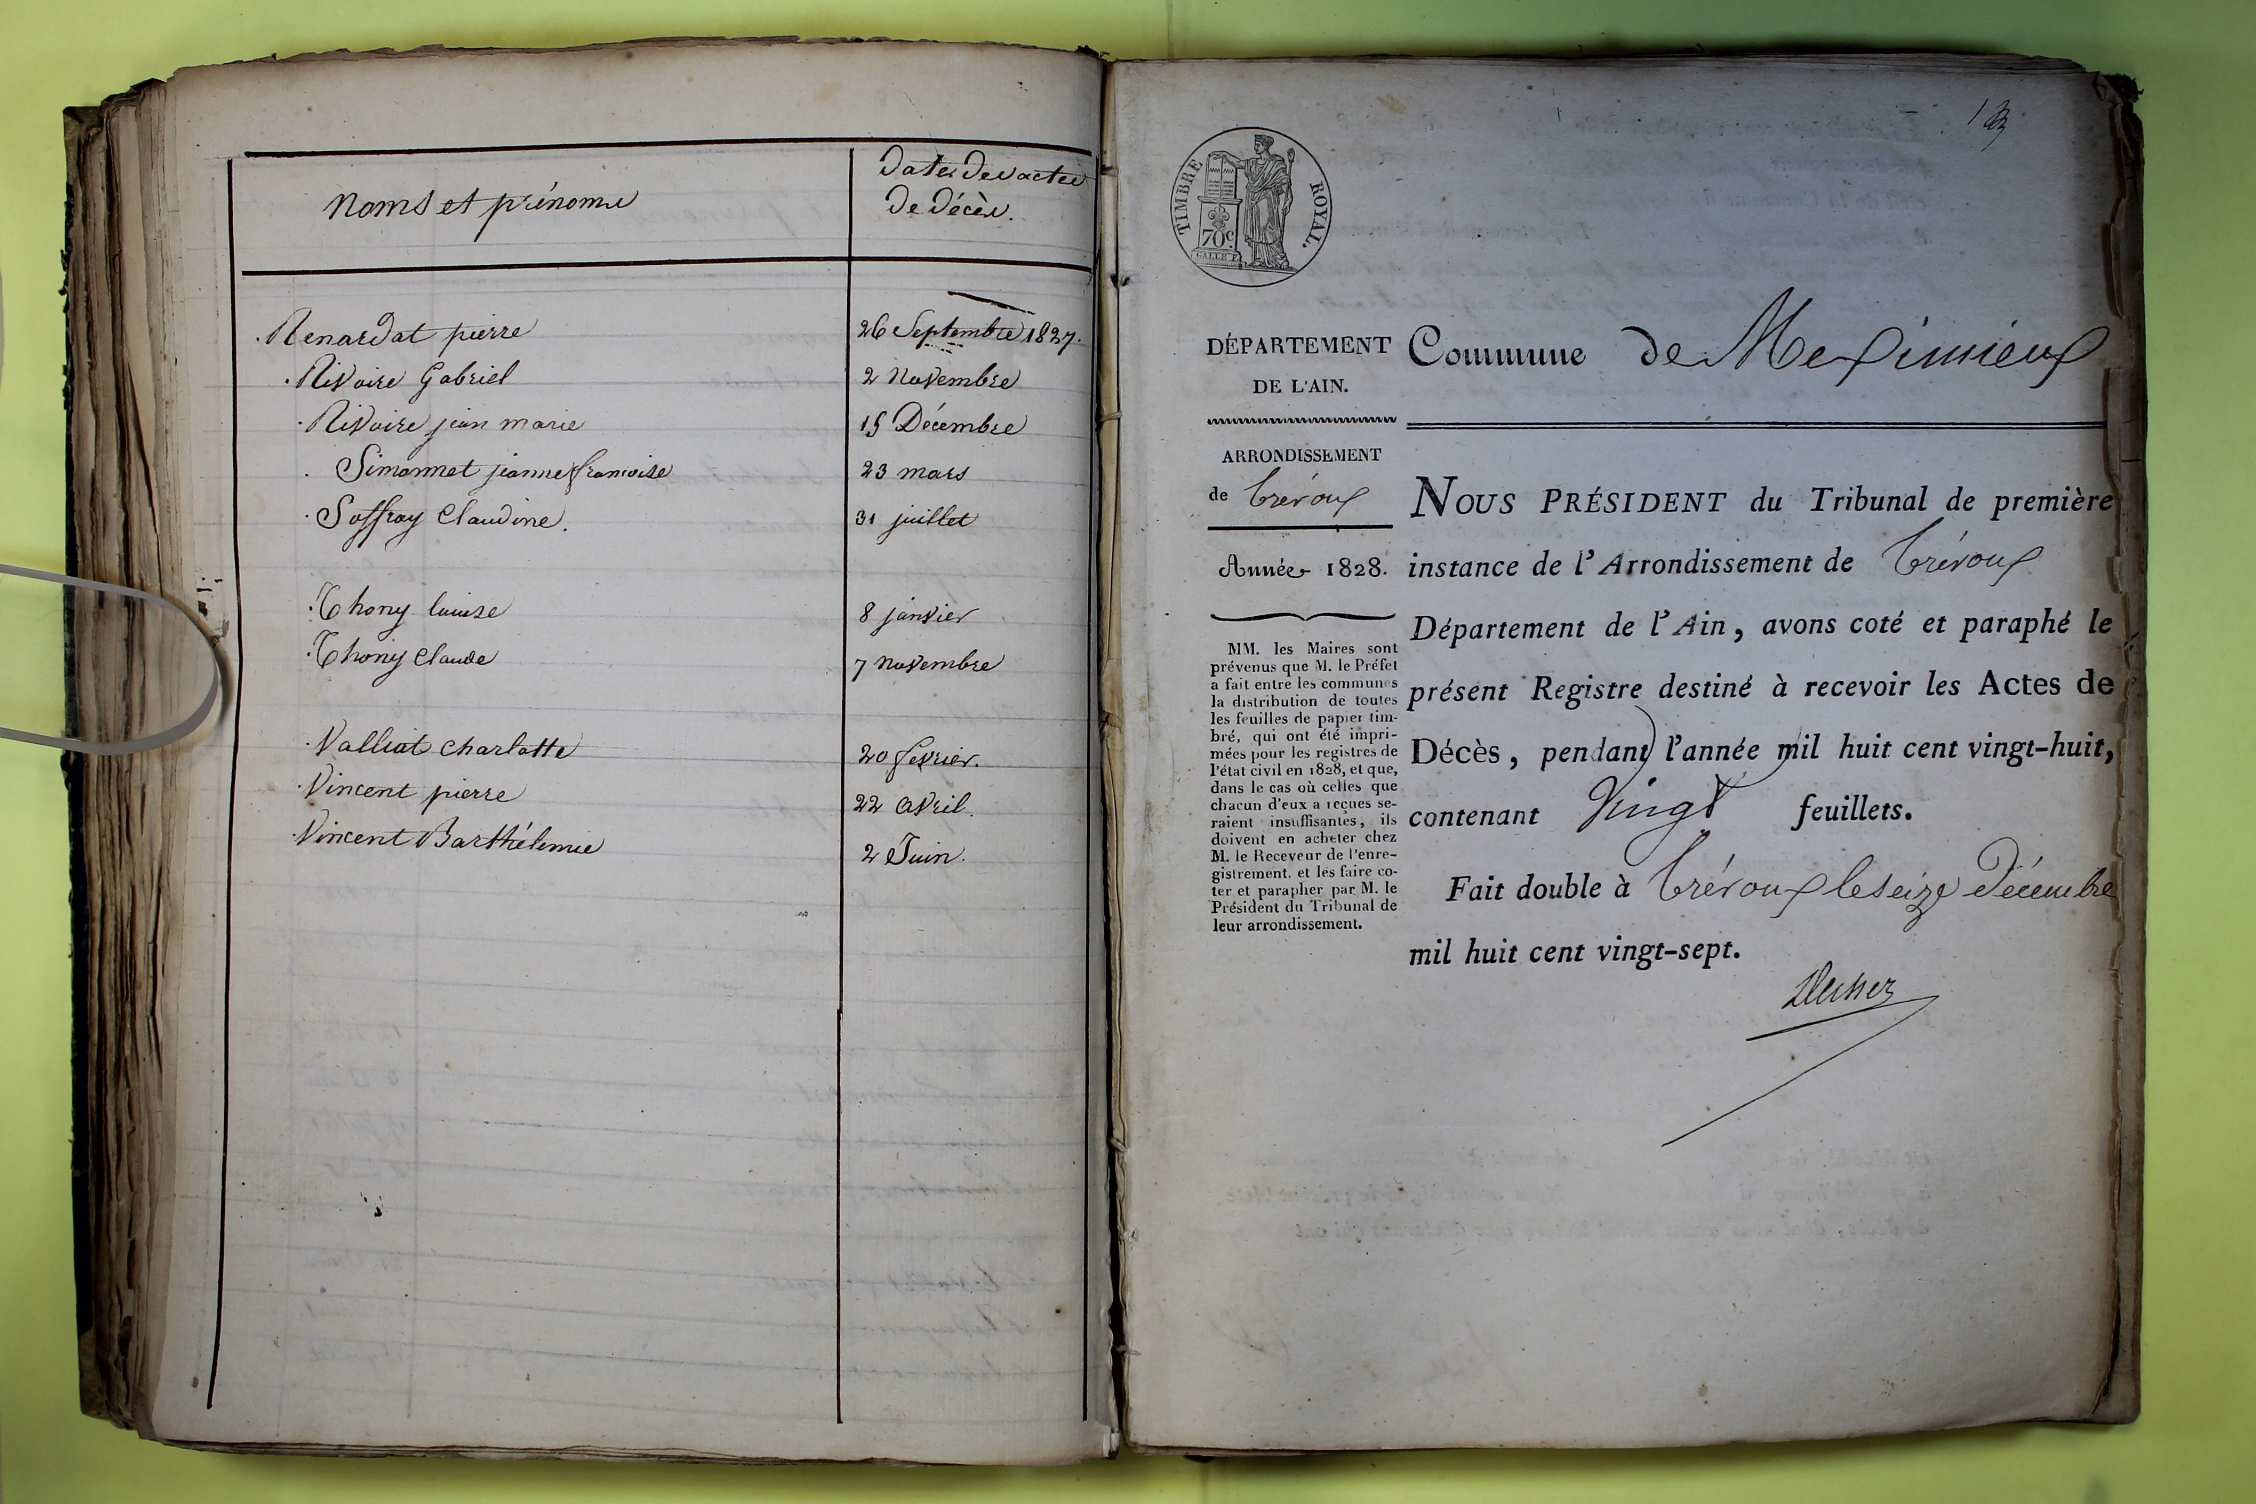 Noms et prénoms
Dates des actes
de décès.
Renardat pierre 26 Septembre 1827.
Rivoire Gabriel 2 Novembre
Rivoire jean marie 15 Décembre
Simonnet jeanne francoise 23 mars
Soffray Claudine. 31 juillet
Thony louise 8 janvier
Thony Claude 7 novembre
Valliat charlotte 20 fevrier.
Vincent pierre 22 avril.
Vincent Barthélemie 2 Juin.
TIMBRE ROYAL.
70c.
GALLE F.
DÉPARTEMENT
DE L'AIN.
ARRONDISSEMENT
de Trévoux
Année 1828.
MM. les Maires sont
prévenus que M. le Préfet
a fait entre les communes
la distribution de toutes
les feuilles de papier tim-
bré, qui ont été impri-
mées pour les registres de
l'état civil en 1828, et que,
dans le cas où celles que
chacun d'eux a reçues se-
raient insuffisantes, ils
doivent en acheter chez
M. le Receveur de l'enre-
gistrement. et les faire co-
ter et parapher par M. le
Président du Tribunal de
leur arrondissement.
Commune de Meximieux
NOUS PRÉSIDENT du Tribunal de première
instance de l'Arrondissement de Trévoux
Département de l'Ain, avons coté et paraphé le
présent Registre destiné à recevoir les Actes de
Décès, pendant l'année mil huit cent vingt-huit,
contenant Vingt feuillets.
Fait double à Trévoux le seize Décembre
mil huit cent vingt-sept.